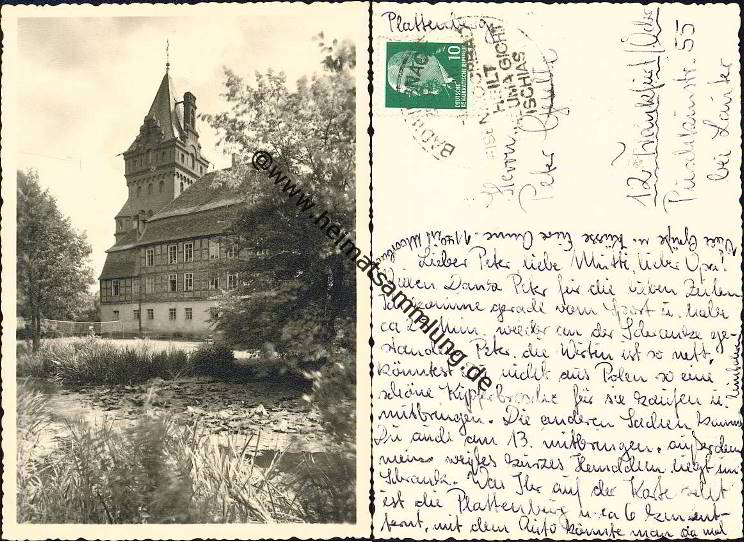 Plattenburg
BAD WILSNACK
EISENMOORBAD
HEILT
RHEUMA GICHT
ISCHIAS
10
DEUTSCHE
DEMOKRATISCHE REPUBLIK
Herrn
Peter
12 Frankfurt/Oder
55
bei
Viele Grüße u. Küsse Eure Anne.
Lieber Peter liebe Mutti lieber Opa!
Vielen Dank Peter für die lieben Zeilen
Ich komme gerade vom Sport u. habe
ca 20 Min. weiter an der Schranke ge-
standen. Peter, die Wirtin ist so nett,
könntest Du nicht aus Polen so eine
schöne Kupferbrosche für sie kaufen u.
mitbringen. Die anderen Sachen kannst
Du auch am 13. mitbringen, außerdem
mein weißes kurzes Hemdchen liegt im
Schrank. Was Ihr auf der Karte seht
ist die Plattenburg u ca 6 km ent-
fernt, mit dem Auto könnte man da mal
@www.heimatsammlung.de